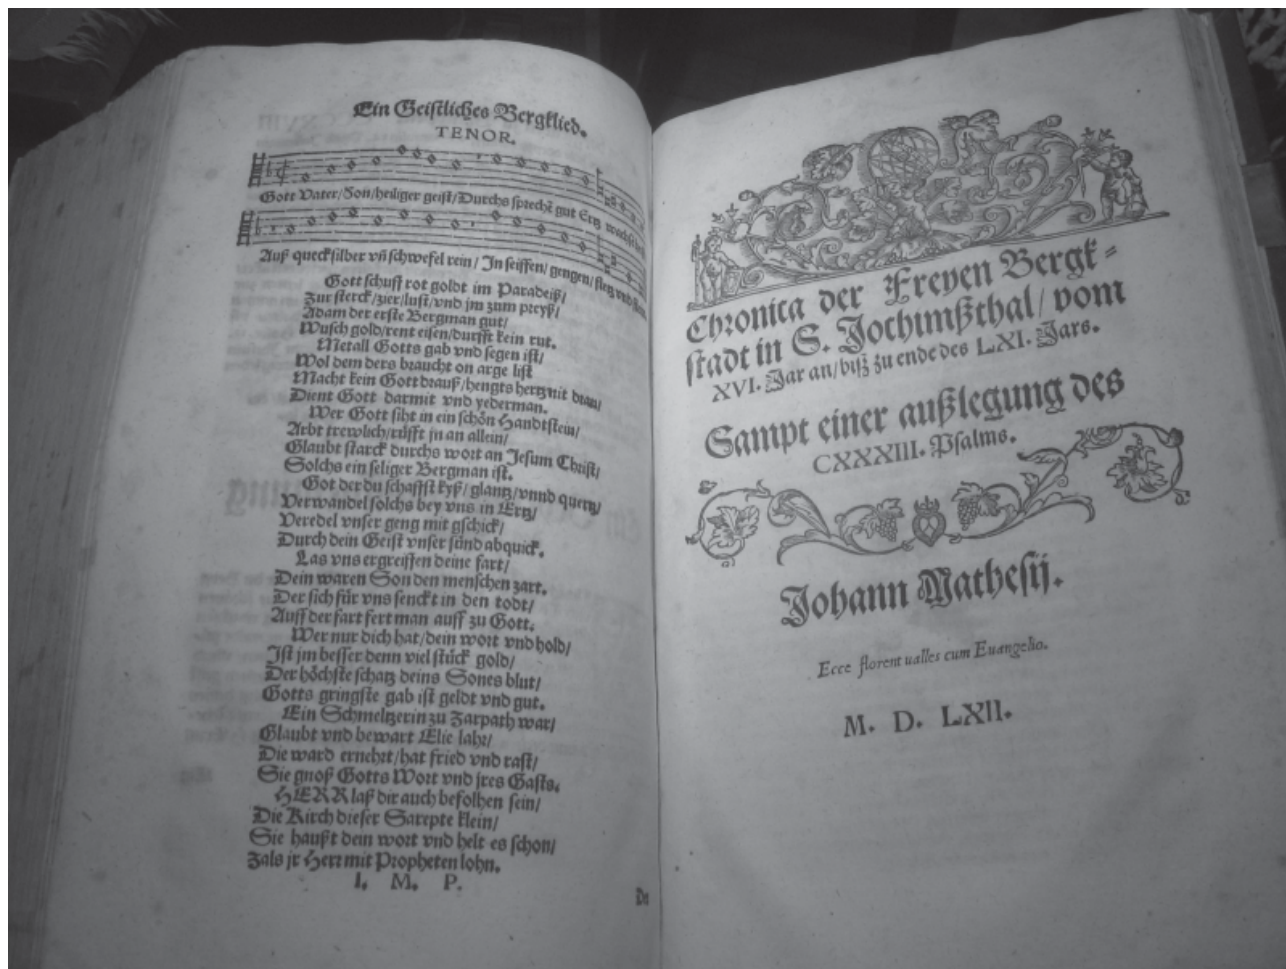 Ein Geistliches Bergklied.
TENOR.
Gott Vater/Son/heiliger geist/Durchs sprechē gut Ertz wechst
Auß quecksilber vñ schwefel rein/ In seiffen/ gengen/ fletz vnd
Gott schuff rot goldt im Paradeiß/
Zur sterck/zier/lust/vnd jm zum preyß/
Adam der erste Bergman gut/
Wusch gold/rent eisen/durfft kein rut.
Metall Gotts gab vnd segen ist/
Wol dem ders braucht on arge list
Macht kein Gott drauß/hengts hertz nit dran/
Dient Gott darmit vnd yederman.
Wer Gott siht in ein schön Handtstein/
Arbt trewlich/rüfft jn an allein/
Glaubt starck durchs wort an Jesum Christ/
Solchs ein seliger Bergman ist.
Got der du schaffst kyß/ glantz/vnnd quertz/
Verwandel solchs bey vns in Ertz/
Veredel vnser geng mit gschick/
Durch dein Geist vnser sünd abquick.
Las vns ergreiffen deine fart/
Dein waren Son den menschen zart.
Der sich für vns senckt in den todt/
Auff der fart fert man auff zu Gott.
Wer nur dich hat/dein wort vnd hold/
Ist jm besser denn viel stück gold/
Der höchste schatz deins Sones blut/
Gotts gringste gab ist geldt vnd gut.
Ein Schmeltzerin zu Zarpath war/
Glaubt vnd bewart Elie lahr/
Die ward ernehrt/hat fried vnd rast/
Sie gnoß Gotts Wort vnd jres Gasts.
HERR laß dir auch befolhen sein/
Die Kirch dieser Sarepte klein/
Sie haußt dein wort vnd helt es schon/
Zals jr Herr mit Propheten lohn.
I. M. P.
Chronica der Freyen Bergk-
stadt in S. Jochimßthal/ vom
XVI. Jar an/biß zu ende des LXI. Jars.
Sampt einer außlegung des
CXXXIII. Psalms.
Johann Mathesij.
Ecce florent ualles cum Euangelio.
M. D. LXII.